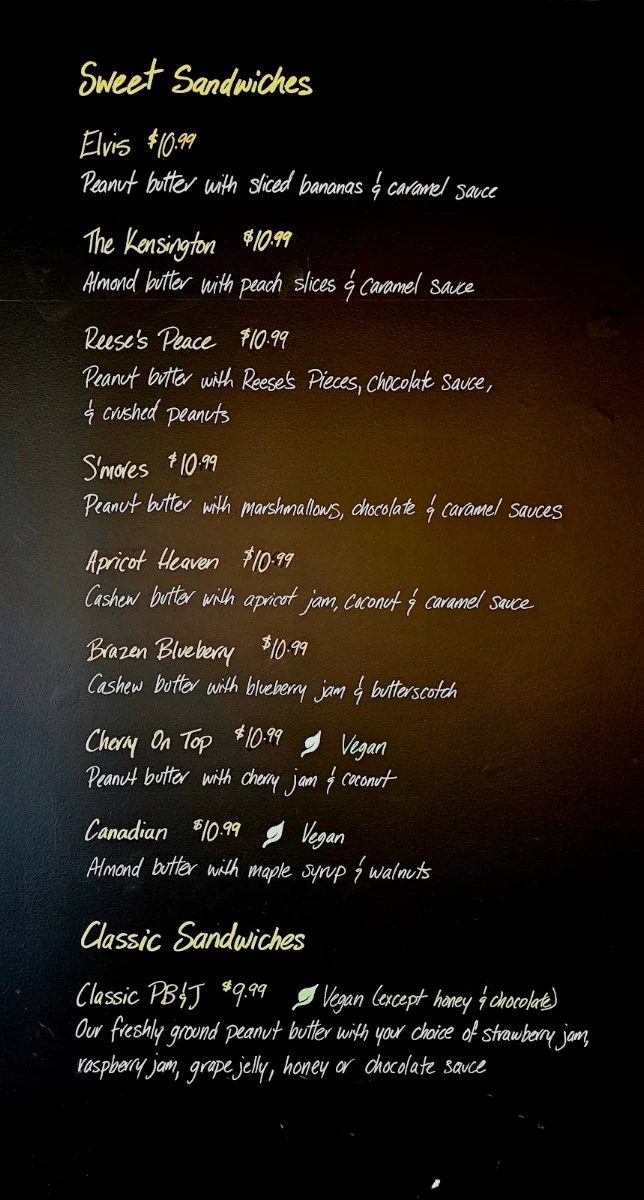 Sweet Sandwiches
Elvis $10.99
Peanut butter with sliced bananas & caramel sauce
The Kensington $10.99
Almond butter with peach slices & caramel sauce
Reese's Peace $10.99
Peanut butter with Reese's Pieces, chocolate sauce,
& crushed peanuts
S'mores $10.99
Peanut butter with marshmallows, chocolate & caramel sauces
Apricot Heaven $10.99
Cashew butter with apricot jam, coconut & caramel sauce
Brazen Blueberry $10.99
Cashew butter with blueberry jam & butterscotch
Cherry On Top $10.99 Vegan
Peanut butter with cherry jam & coconut
Canadian $10.99 Vegan
Almond butter with maple syrup & walnuts
Classic Sandwiches
Classic PB&J $9.99 Vegan (except honey & chocolate)
Our freshly ground peanut butter with your choice of strawberry jam,
raspberry jam, grape jelly, honey or chocolate sauce